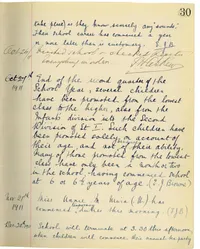 30
take place) as they know scarcely any "sounds".
This school week has commenced a year
or more later than is customary. J.B.
Oct 27th
1911
End of the second quarter of the
School Year, several children
have been promoted from the lowest
class to the higher, also from the
Infants division into the Second
Division of St I. Such children have
been promoted solely on account of
their age, and not of their ability,
many of those promoted from the lowest
class have only been a month or two
in the school, having commenced School
at 6 or 6½ years of age. (J. Brown)
Nov 27th
1911
Miss Annie
commenced duties this morning (J.B)
School will terminate at 3.30 this afternoon,
when children will